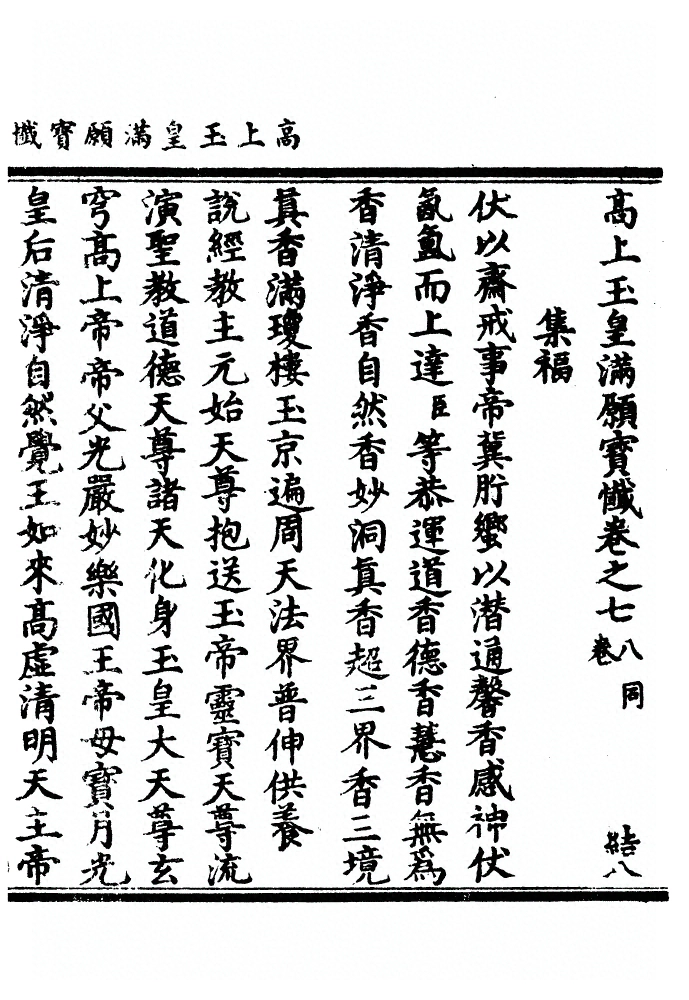 高上玉皇滿願寶懺
高上玉皇滿願寶懺卷之七 八同卷 結八
集福
伏以齋戒事帝冀肸蠁以潛通馨香感神伏
氤氳而上達臣等恭運道香德香慧香無爲
香清淨香自然香妙洞眞香超三界香三境
眞香滿瓊樓玉京遍周天法界普伸供養
說經教主元始天尊抱送玉帝靈寶天尊流
演聖教道德天尊諸天化身玉皇大天尊玄
穹高上帝帝父光嚴妙樂國王帝母寶月光
皇后清淨自然覺王如來高虛清明天主帝